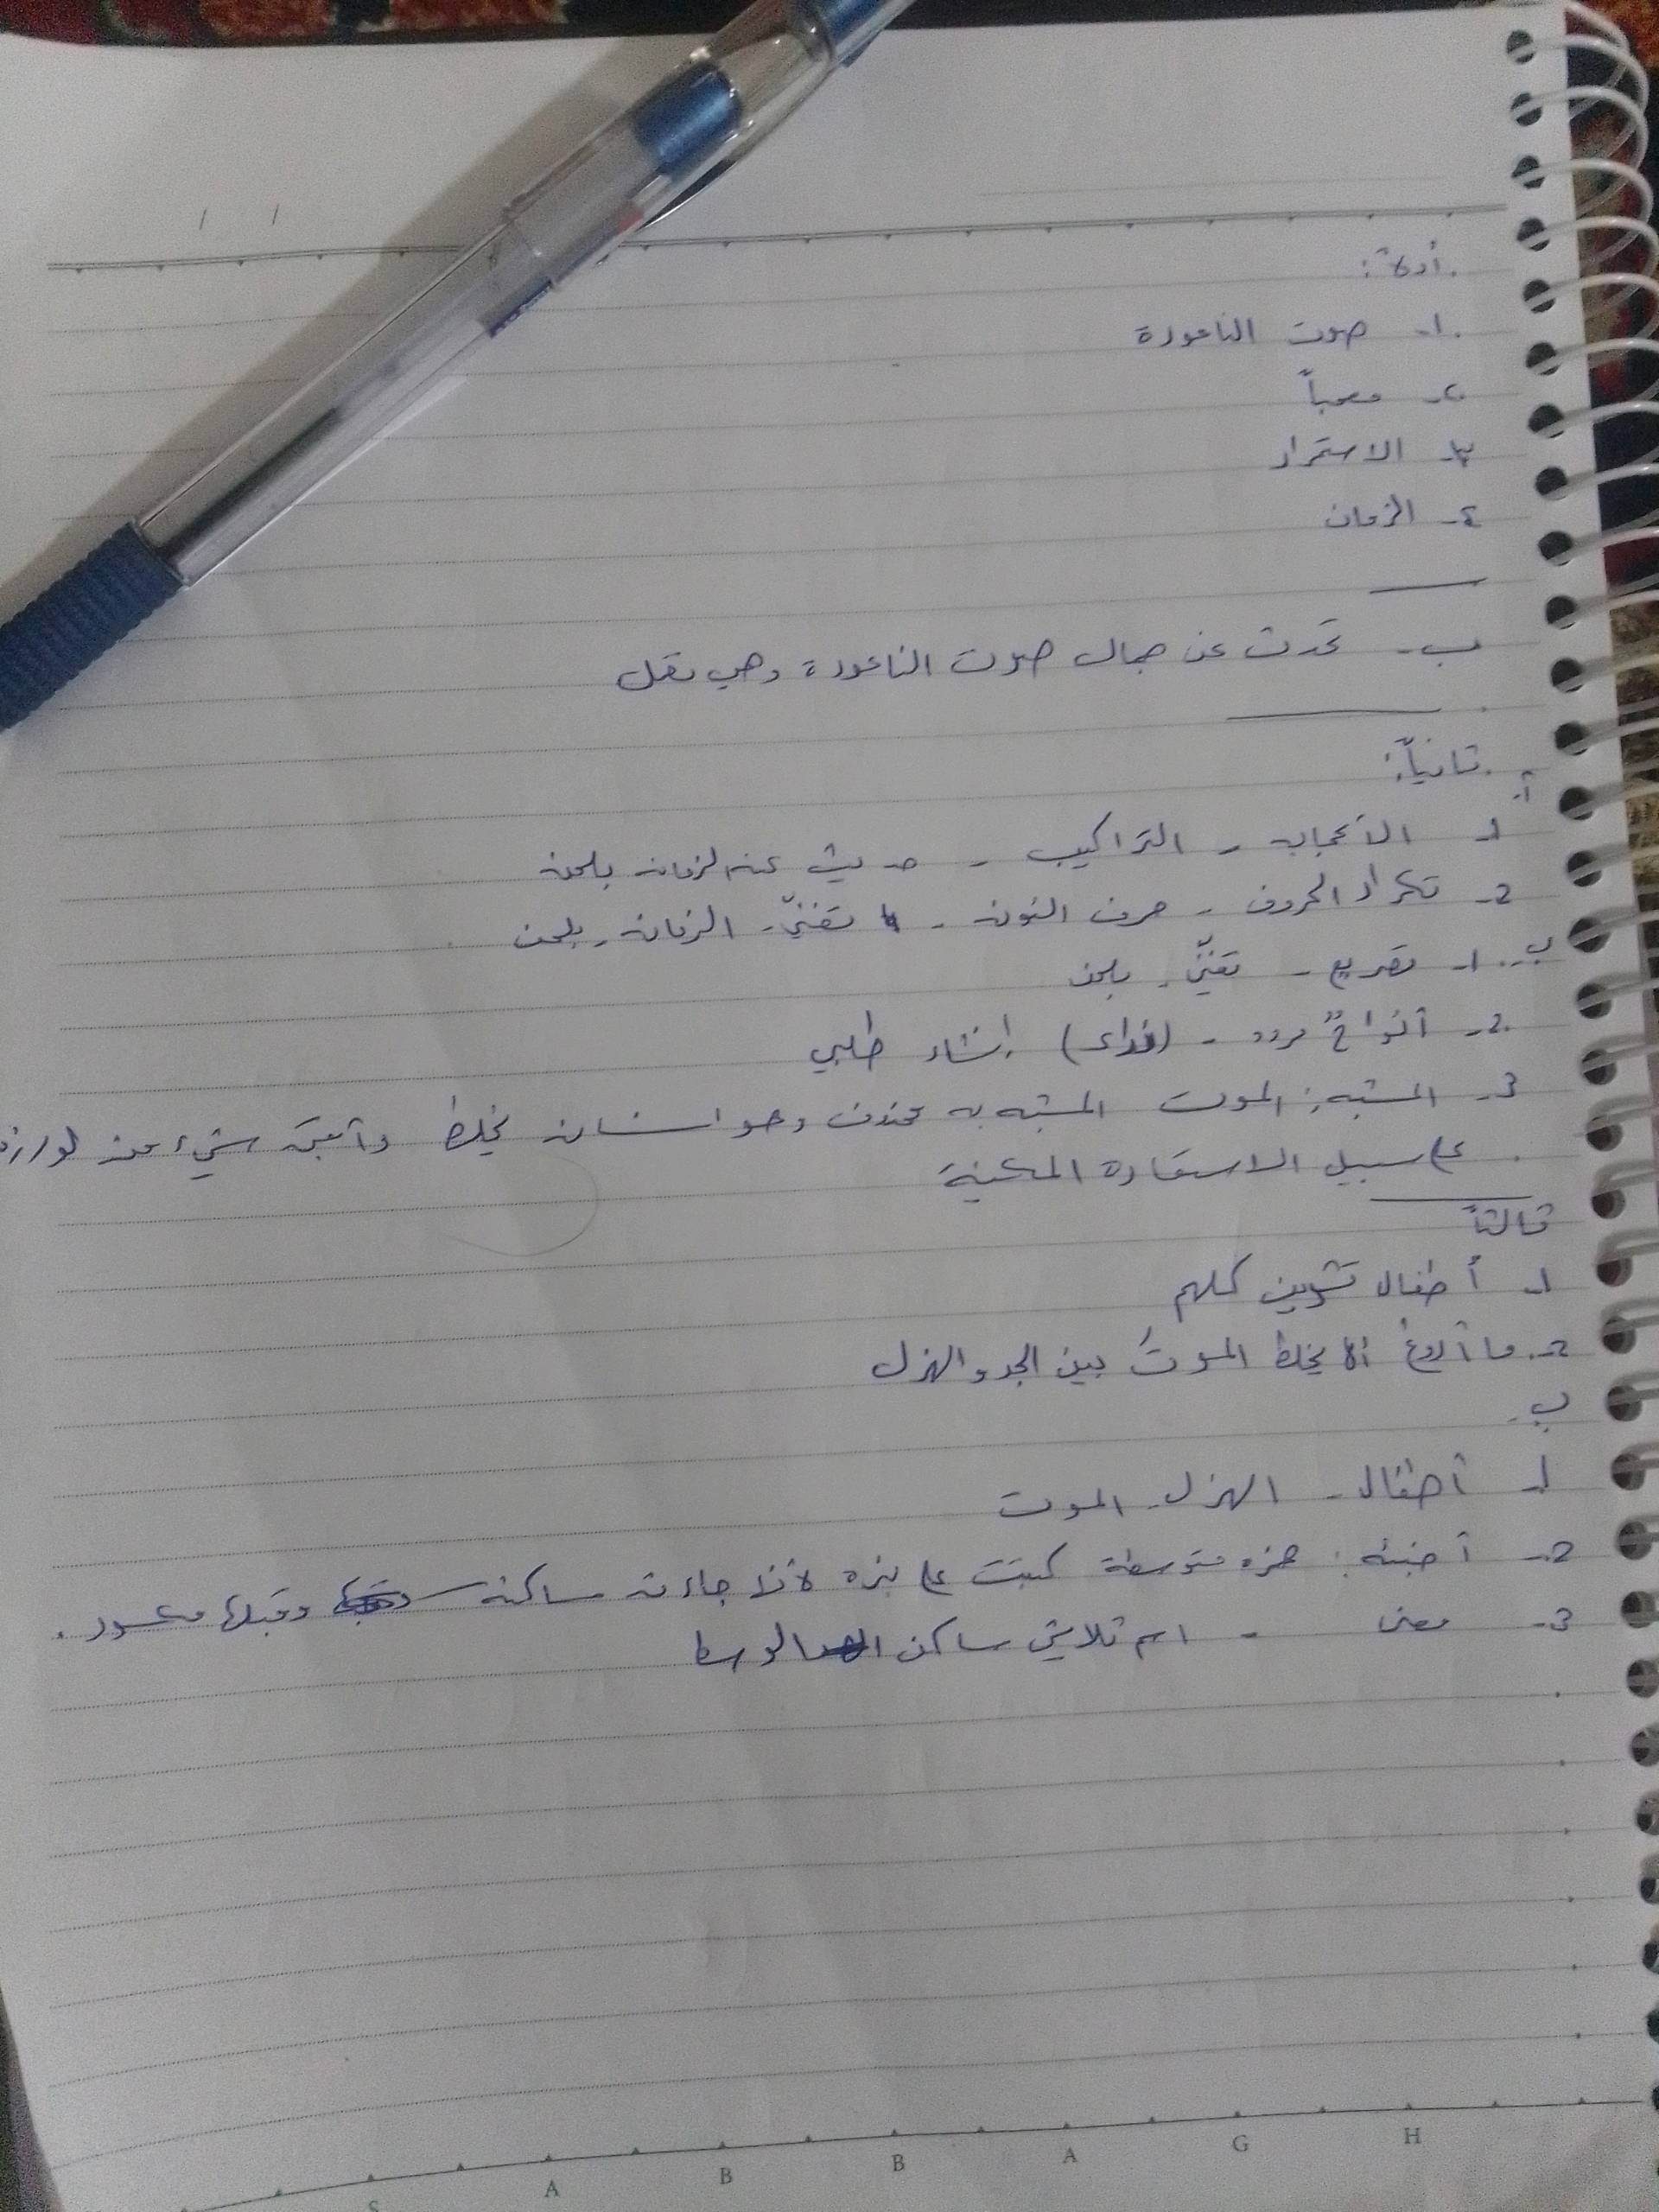 أولاً:
1- صوت الناعورة
2- معجباً
3- الاستمرار
4- الزمان
ب- تحدث عن جمال صوت الناعورة وهي
ثانياً:
أ-
1- الاعجاب - التراكيب - حديث عن الزمان بلحن
2- تكرار الحروف - حرف النون - تغنّي - الزمان - بلحن
ب- 1- تصريع - تغنّي - بلحن
2- - (نداء) إنشاء طلبي
3- المشبه: الموت المشبه به محذوف وهو انسان يخلط وأبقى شيء من لوازم
على سبيل الاستعارة المكنية
ثالثاً
1- أطفال تشرين كلهم
2- ما أروع ألا يخلط الموتُ بين الجد والهزل
ب-
1- أطفال - الهزل - الموت
2- : همزه متوسطة كتبت على نبره لأنها جاءت ساكنة وقبلها مكسور.
3- معنى - اسم ثلاثي ساكن الوسط
S A B B A G H